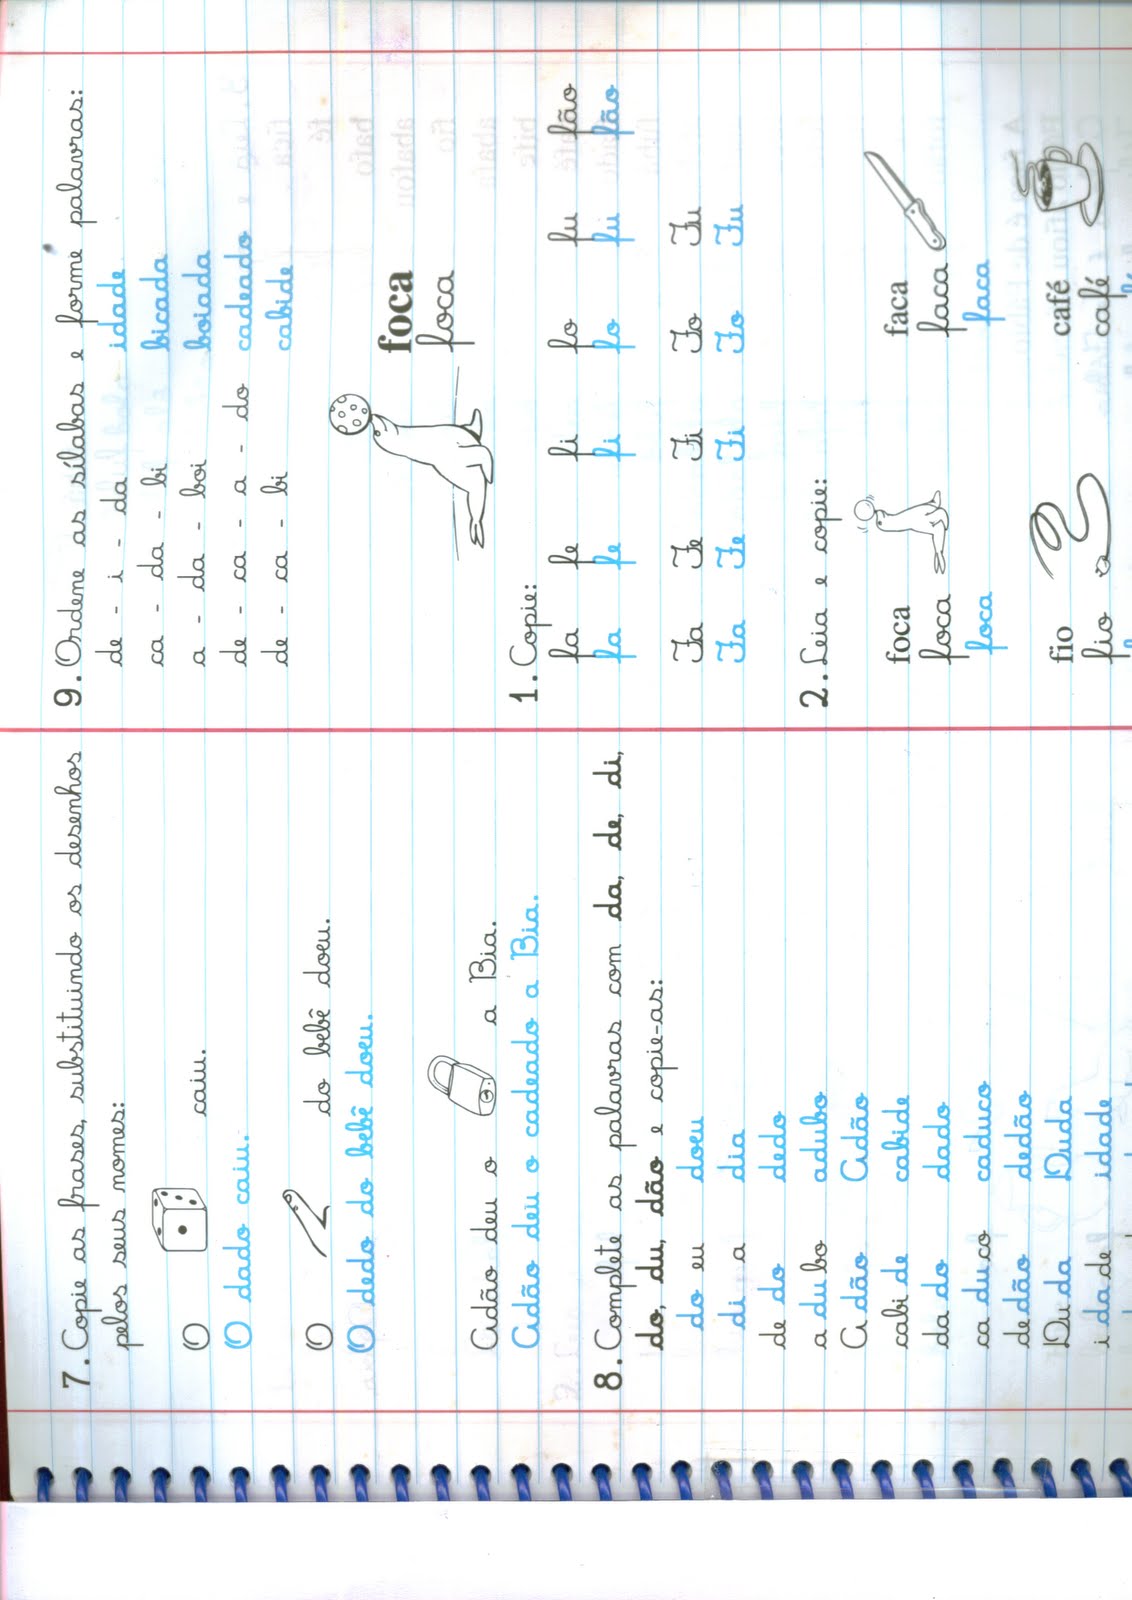 7. Copie as frases, substituindo os desenhos
pelos seus nomes:
O caiu.
O dado caiu.
O do bebê doeu.
O dedo do bebê doeu.
Adão deu o a Bia.
Adão deu o cadeado a Bia.
8. Complete as palavras com da, de, di,
do, du, dão e copie-as:
do eu doeu
di a dia
de do dedo
a du bo adubo
A dão Adão
cabi de cabide
da do dado
ca du co caduco
de dão dedão
Du da Duda
i da de idade
9. Ordene as sílabas e forme palavras:
de - i - da idade
ca - da - bi bicada
a - da - boi boiada
de - ca - a - do cadeado
de - ca - bi cabide
foca
foca
1. Copie:
fa fe fi fo fu fão
fa fe fi fo fu fão
Fa Fe Fi Fo Fu
Fa Fe Fi Fo Fu
2. Leia e copie:
foca faca
foca faca
foca faca
fio café
fio café